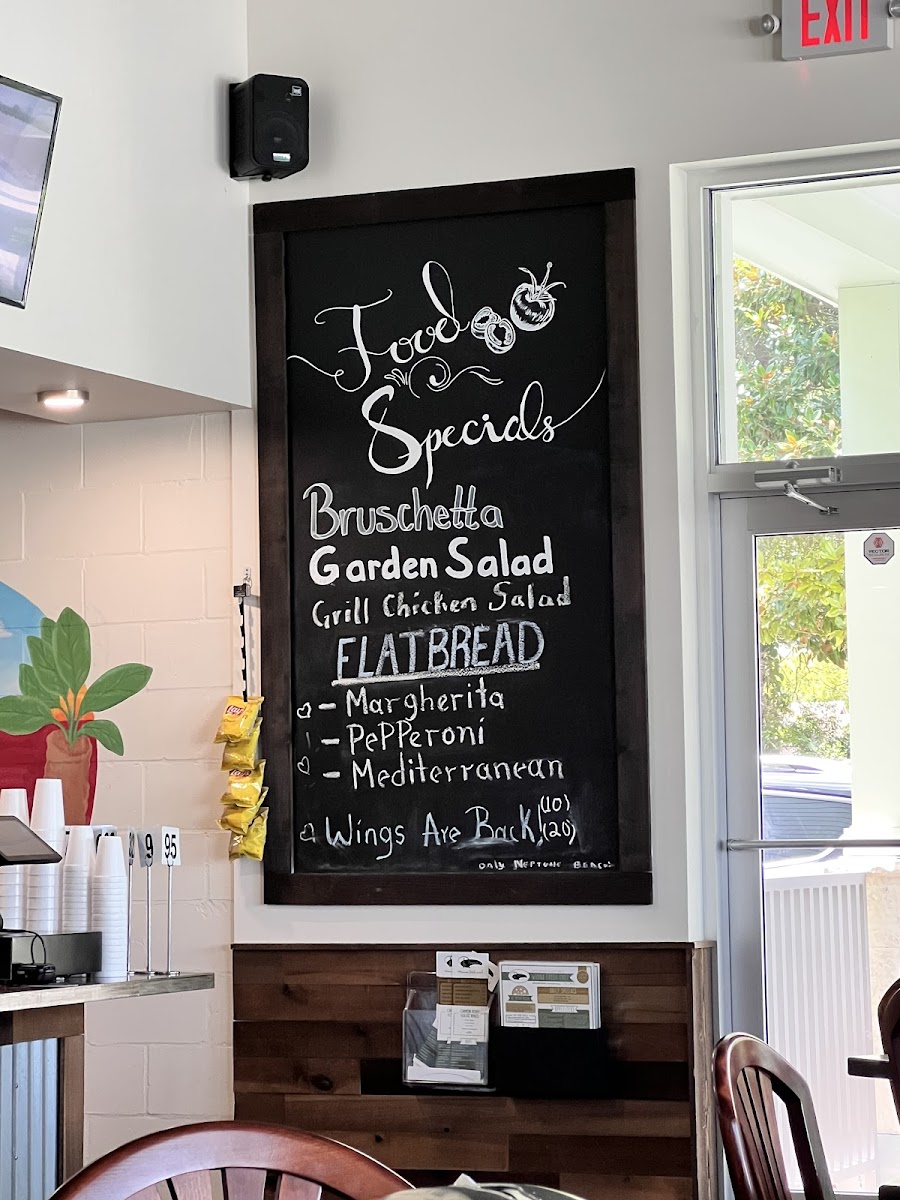 EXIT
Food
Specials
Bruschetta
Garden Salad
Grill Chicken Salad
FLATBREAD
- Margherita
- PePPeroni
- Mediterranean
Wings Are Back! (10)
(20)
only Neptune Beach
Lay's
9
95